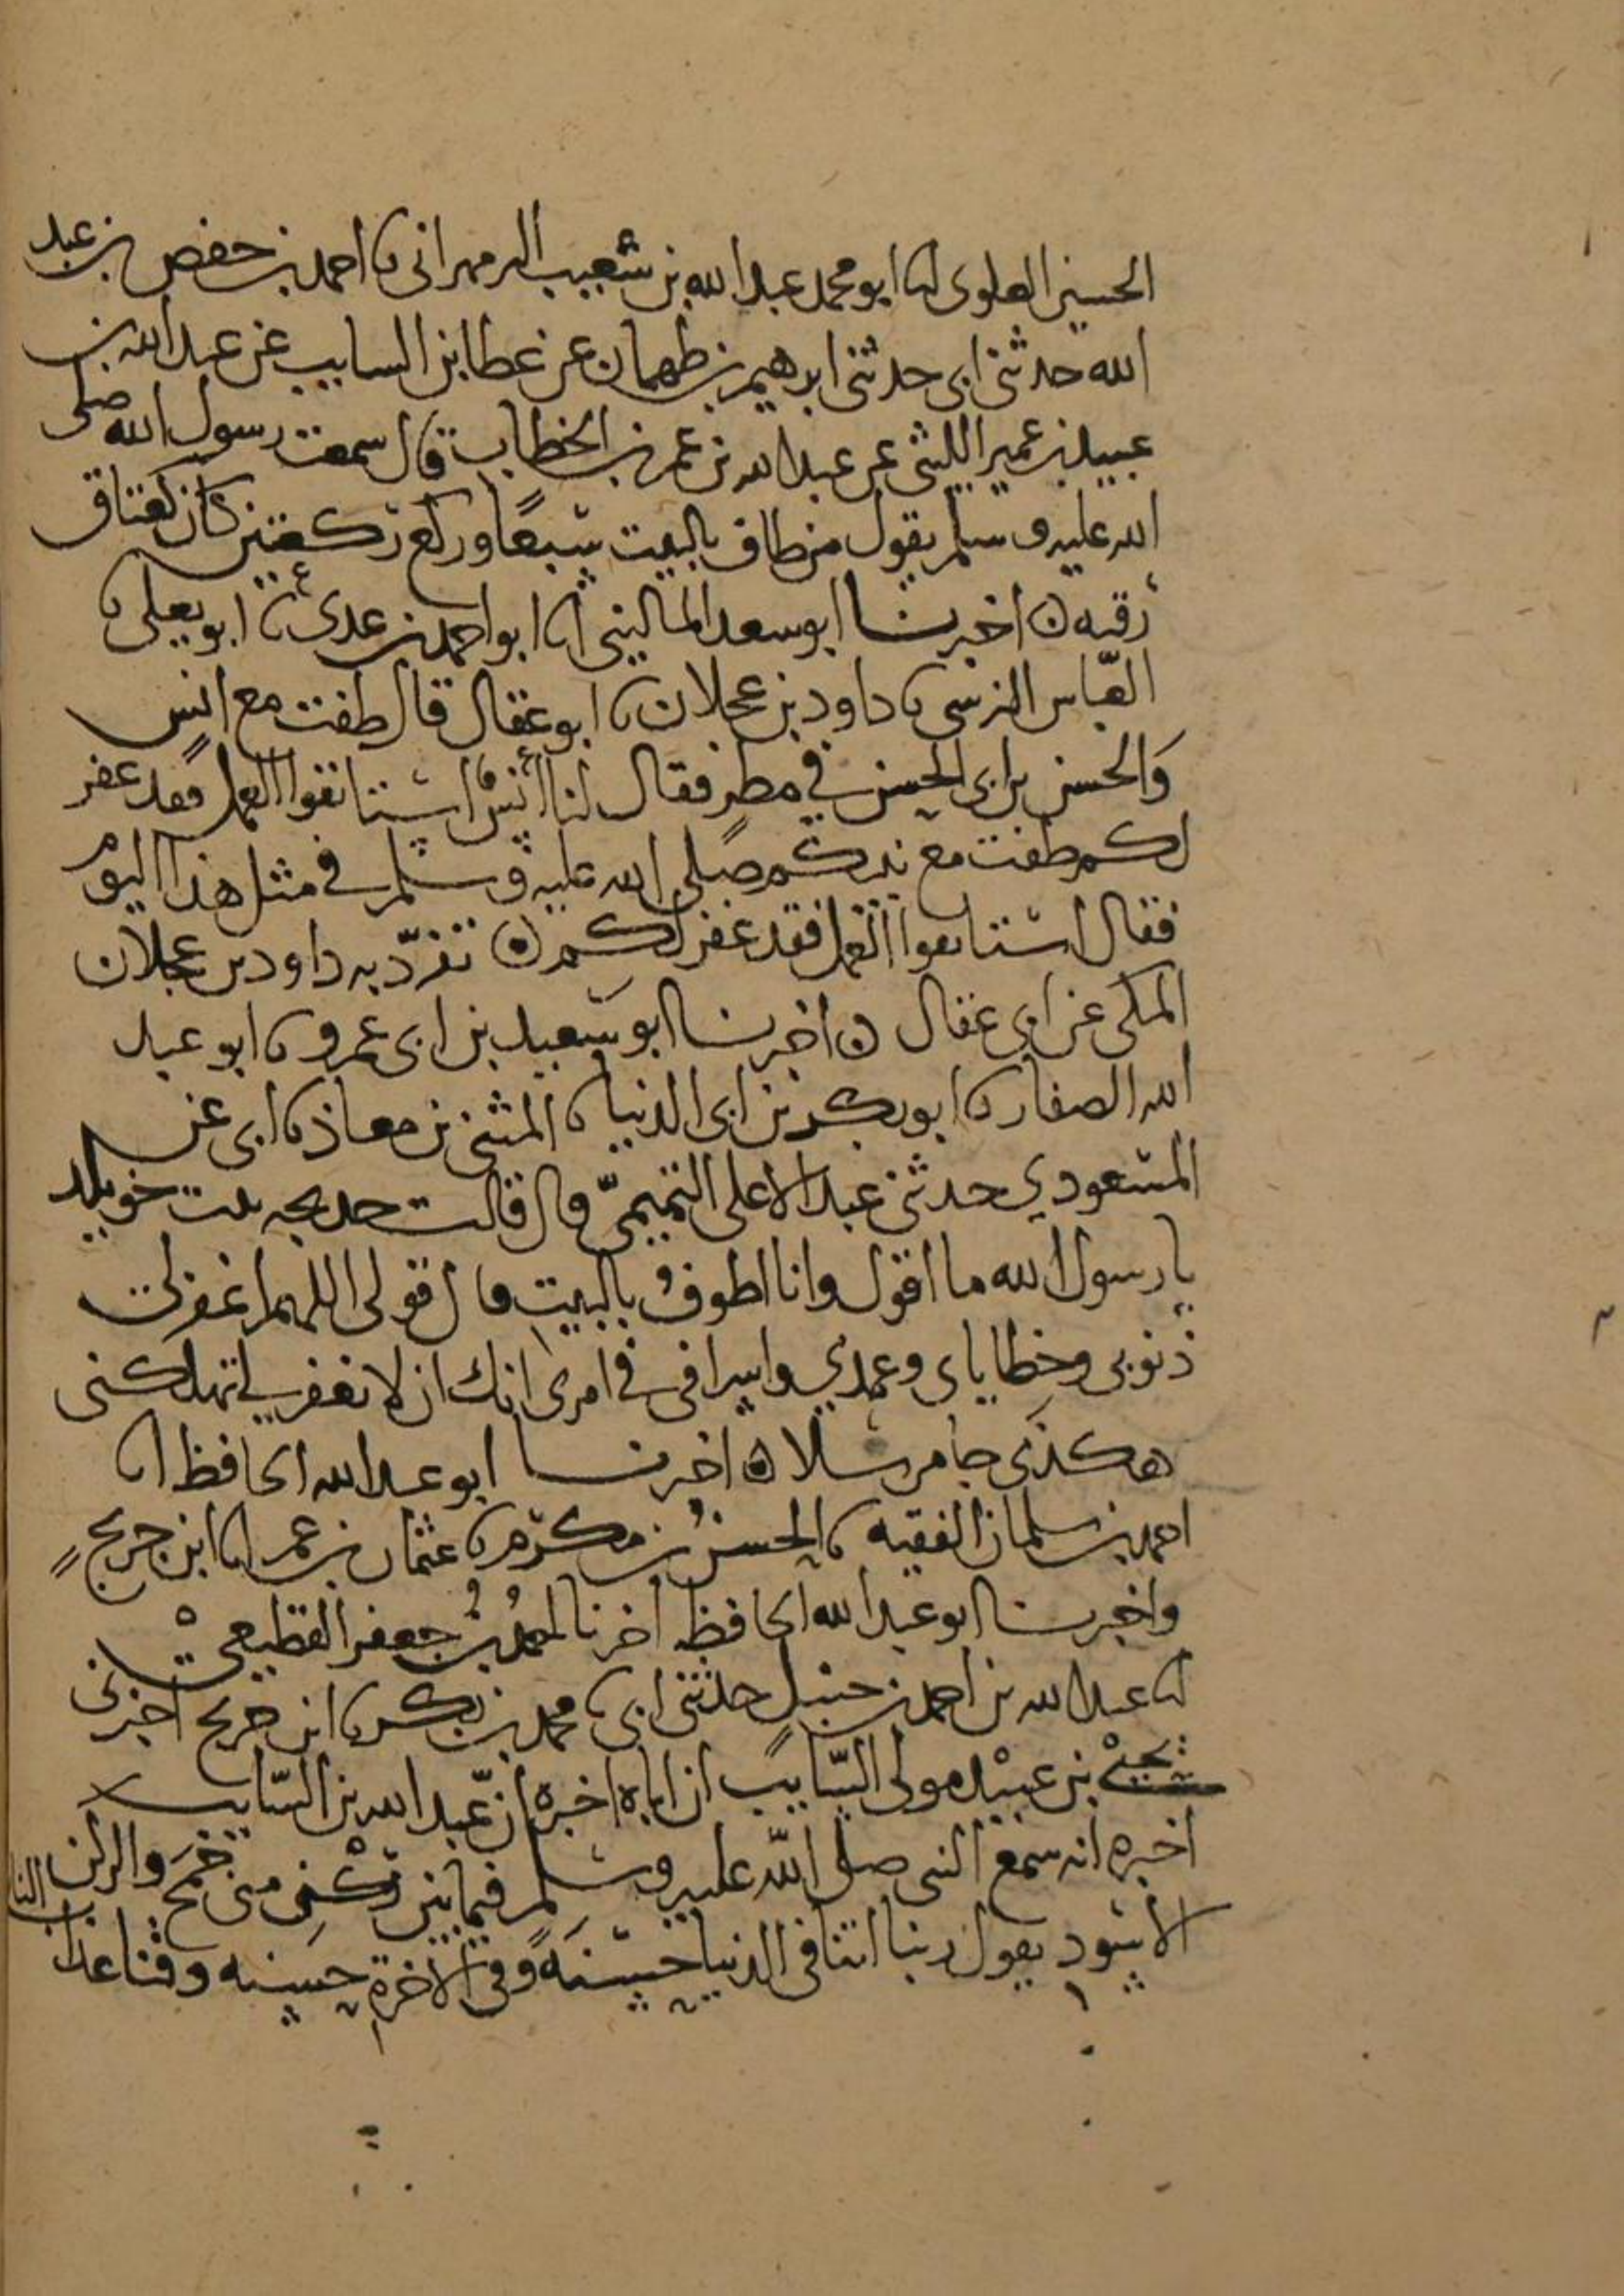 الحسين العلوى انا ابو محمد عبد الله بن شعيب البرمهرانى نا احمد بن حفص بن عبد
الله حدثنى ابى حدثنى ابرهيم بن طهمان عن عطا بن السايب عن عبد الله بن
عبيد بن عمير الليثى عن عبد الله بن عمر بن الخطاب قال سمعت رسول الله صلى
الله عليه وسلم يقول من طاف بالبيت سبعًا وركع ركعتين كان كعتاق
رقبه ه اخبرنا ابو سعد المالينى انا ابو احمد بن عدى نا ابو يعلى نا
العبّاس النرسى نا داود بن عجلان نا ابو عقال قال طفت مع انس
وَالحسن بن ابى الحسن فى مطرٍ فقال لنا أنسٌ استانفوا العمل فقد غفر
لكم طفت مع نبيكم صلى الله عليه وسلم فى مثل هذا اليوم
فقال استانفوا العمل فقد غفر لكم ه تفرّد به داود بن عجلان
المكى عن ابى عقال ه اخبرنا ابو سَعيد بن ابى عمرو نا ابو عبد
الله الصفار نا ابو بكر بن ابى الدنيا نا المثنى بن معاذ نا ابى عن
المسعودي حدثنى عبد الاعلى التميمىّ قال قالت خديجه بنت خويلد
يا رسول الله ما اقول وانا اطوفُ بالبيت قال قولى اللهم اغفر لى
ذنوبى وخطاياى وعمدي واسرافى فى امرى انك ان لا تغفر لى تهلكنى
هكذى جا مرسلا ه اخبرنا ابو عبد الله الحافظ انا
احمد بن سلمان الفقيه نا الحسنُ بن مكرّم نا عثمان بن عمر انا ابن جريج
واخبرنا ابو عبد الله الحافظ اخرنا احمدُ بنُ جعفر القطيعى
نا عبد الله بن احمد بن حنبلٍ حدثنى ابى نا محمد بن بكر نا ابن جريج اخبرنى
يحيىْ بن عبيْد مولى السّايب ان اباه اخبره ان عبد الله بن السّايب
اخبره انه سمع النبى صلى الله عليه وسلم فيما بين ركْنِ منى جمَح والركن
الاسود يقول ربنا اتنا فى الدنيا حسنَةً وفى الاخرةِ حسَنه وقنا عذاب النا